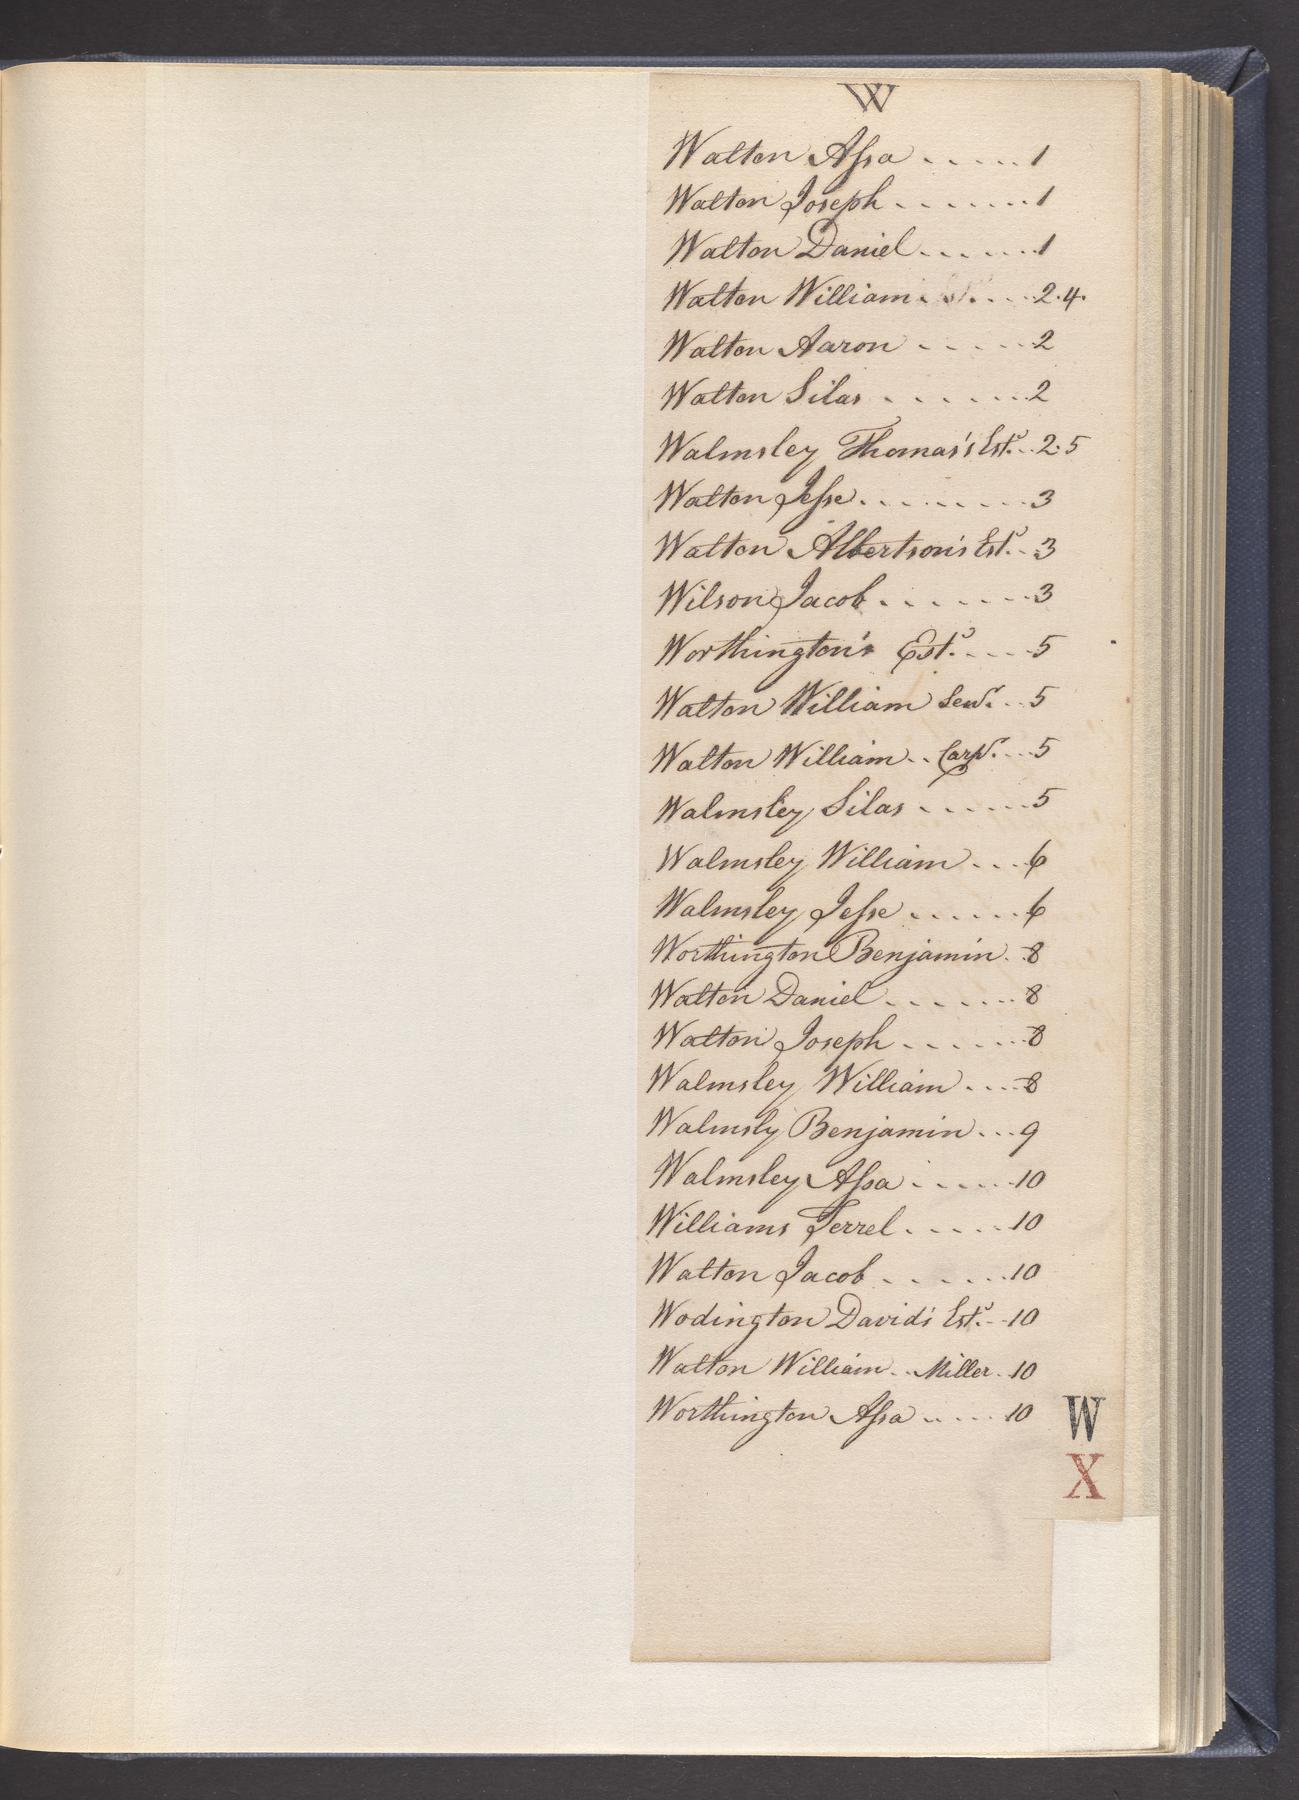 W
Walton Assa . . . . . . 1
Walton Joseph . . . . . . . 1
Walton Daniel . . . . . . 1
Walton William . . . . 2.4.
Walton Aaron . . . . . 2
Walton Silas . . . . . . . 2
Walmsley Thomas's Est. . . 2.5
Walton Jesse . . . . . . . . . 3
Walton Albertson's Est. . . 3
Wilson Jacob . . . . . . . 3
Worthington's Est. . . . . 5
Walton William Senr. . . 5
Walton William . . Carpr. . . . 5
Walmsley Silas . . . . . . 5
Walmsley William . . . 6
Walmsley Jesse . . . . . . 6
Worthington Benjamin . . 8
Walton Daniel . . . . . . . 8
Walton Joseph . . . . . . . 8
Walmsley William . . . . 8
Walmsly Benjamin . . . 9
Walmsley Assa . . . . . . 10
Williams Terrel . . . . . 10
Walton Jacob . . . . . . . 10
Wodington David's Est. . . 10
Walton William . . Miller . 10
Worthington Assa . . . . . 10
W
X